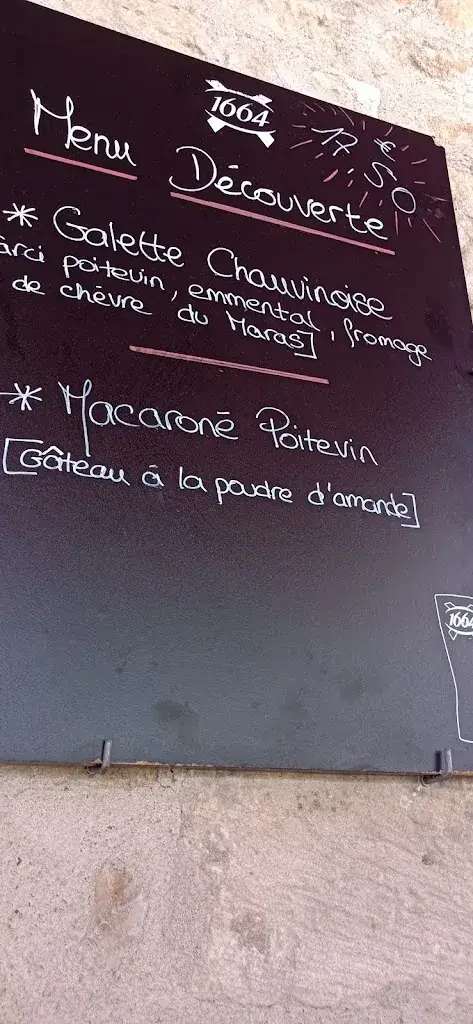 1664
Menu Découverte
17 € 50
* Galette Chauvinoise
arci poitevin, emmental, fromage
de chèvre du Maras]
* Macaroné Poitevin
[Gâteau à la poudre d'amande]
1664